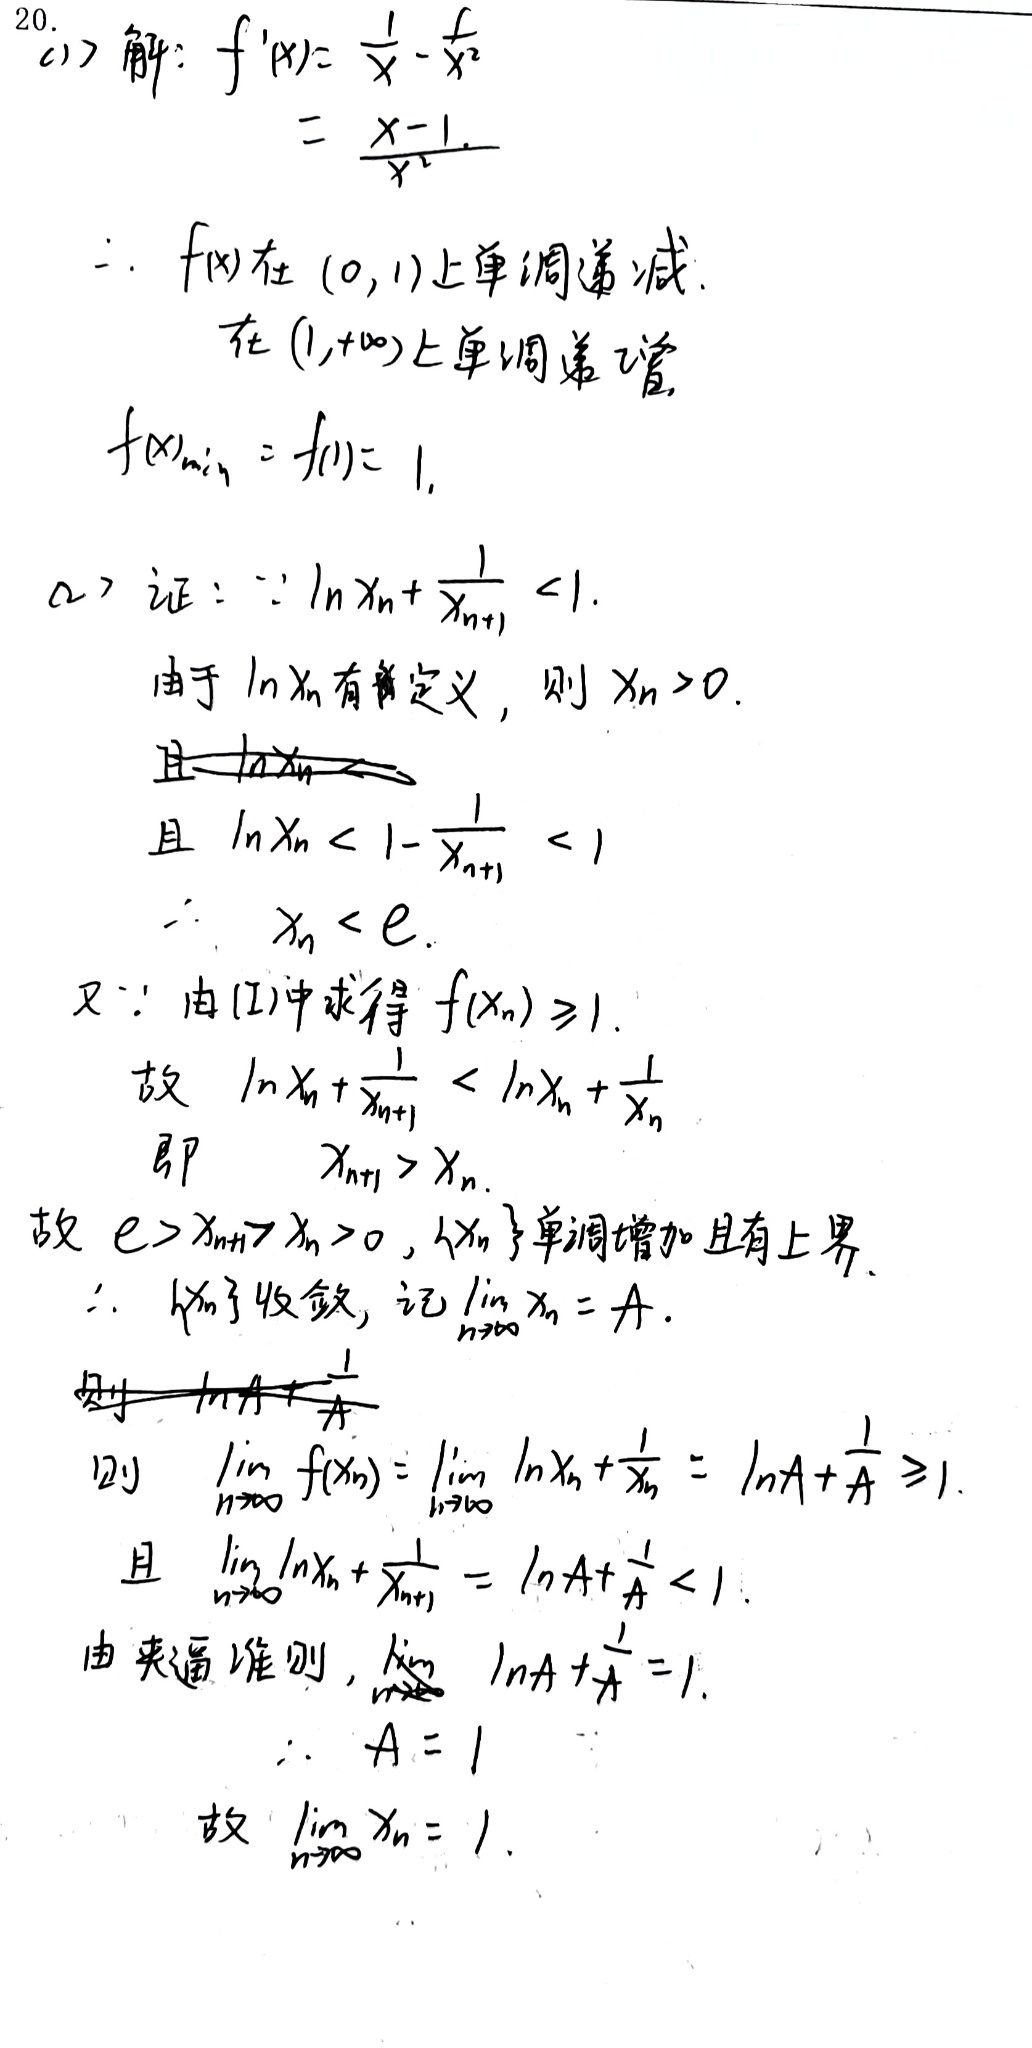 20.
(1) 解: f'(x) = 1/x - 1/x²
= (x-1)/x².
∴ f(x) 在 (0, 1) 上单调递减.
在 (1, +∞) 上单调递增.
f(x)min = f(1) = 1.
(2) 证: ∵ ln xₙ + 1/xₙ₊₁ < 1.
由于 ln xₙ 有定义, 则 xₙ > 0.
且 ln xₙ <
且 ln xₙ < 1 - 1/xₙ₊₁ < 1
∴ xₙ < e.
又∵ 由(I)中求得 f(xₙ) ≥ 1.
故 ln xₙ + 1/xₙ₊₁ < ln xₙ + 1/xₙ
即 xₙ₊₁ > xₙ.
故 e > xₙ₊₁ > xₙ > 0, {xₙ}单调增加且有上界.
∴ {xₙ}收敛, 记 lim n→∞ xₙ = A.
则 ln A + 1/A
则 lim n→∞ f(xₙ) = lim n→∞ ln xₙ + 1/xₙ = ln A + 1/A ≥ 1.
且 lim n→∞ ln xₙ + 1/xₙ₊₁ = ln A + 1/A < 1.
由夹逼准则, lim n→∞ ln A + 1/A = 1.
∴ A = 1
故 lim n→∞ xₙ = 1.